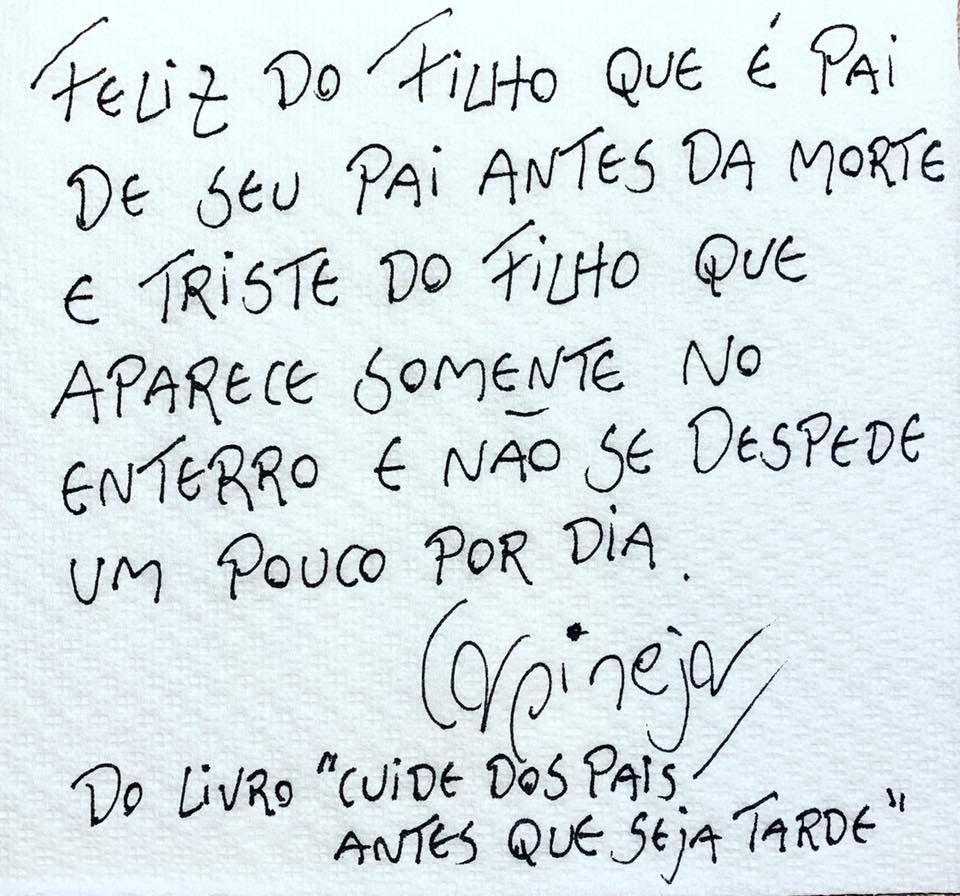 FELIZ DO FILHO QUE É PAI
DE SEU PAI ANTES DA MORTE
E TRISTE DO FILHO QUE
APARECE SOMENTE NO
ENTERRO E NÃO SE DESPEDE
UM POUCO POR DIA.
Carpinejar
DO LIVRO "CUIDE DOS PAIS
ANTES QUE SEJA TARDE"